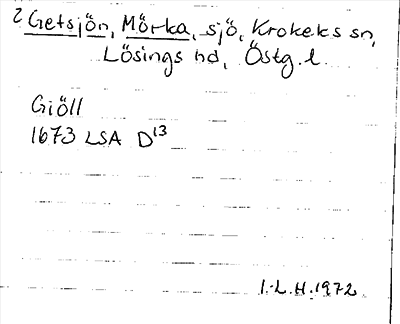 ? Getsjön, Mörka, sjö, Krokeks sn,
Lösings hd, Östg. l.
Giöll
1673 LSA D13
I.-L. H. 1972